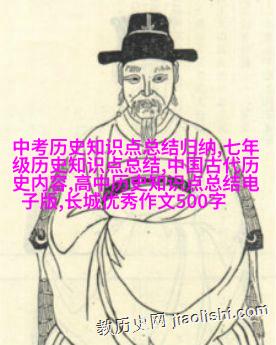 中考历史知识点总结归纳,七年
级历史知识点总结,中国古代历
史内容,高中历史知识点总结电
子版,长城优秀作文500字
教历史网 jiaolishi.com